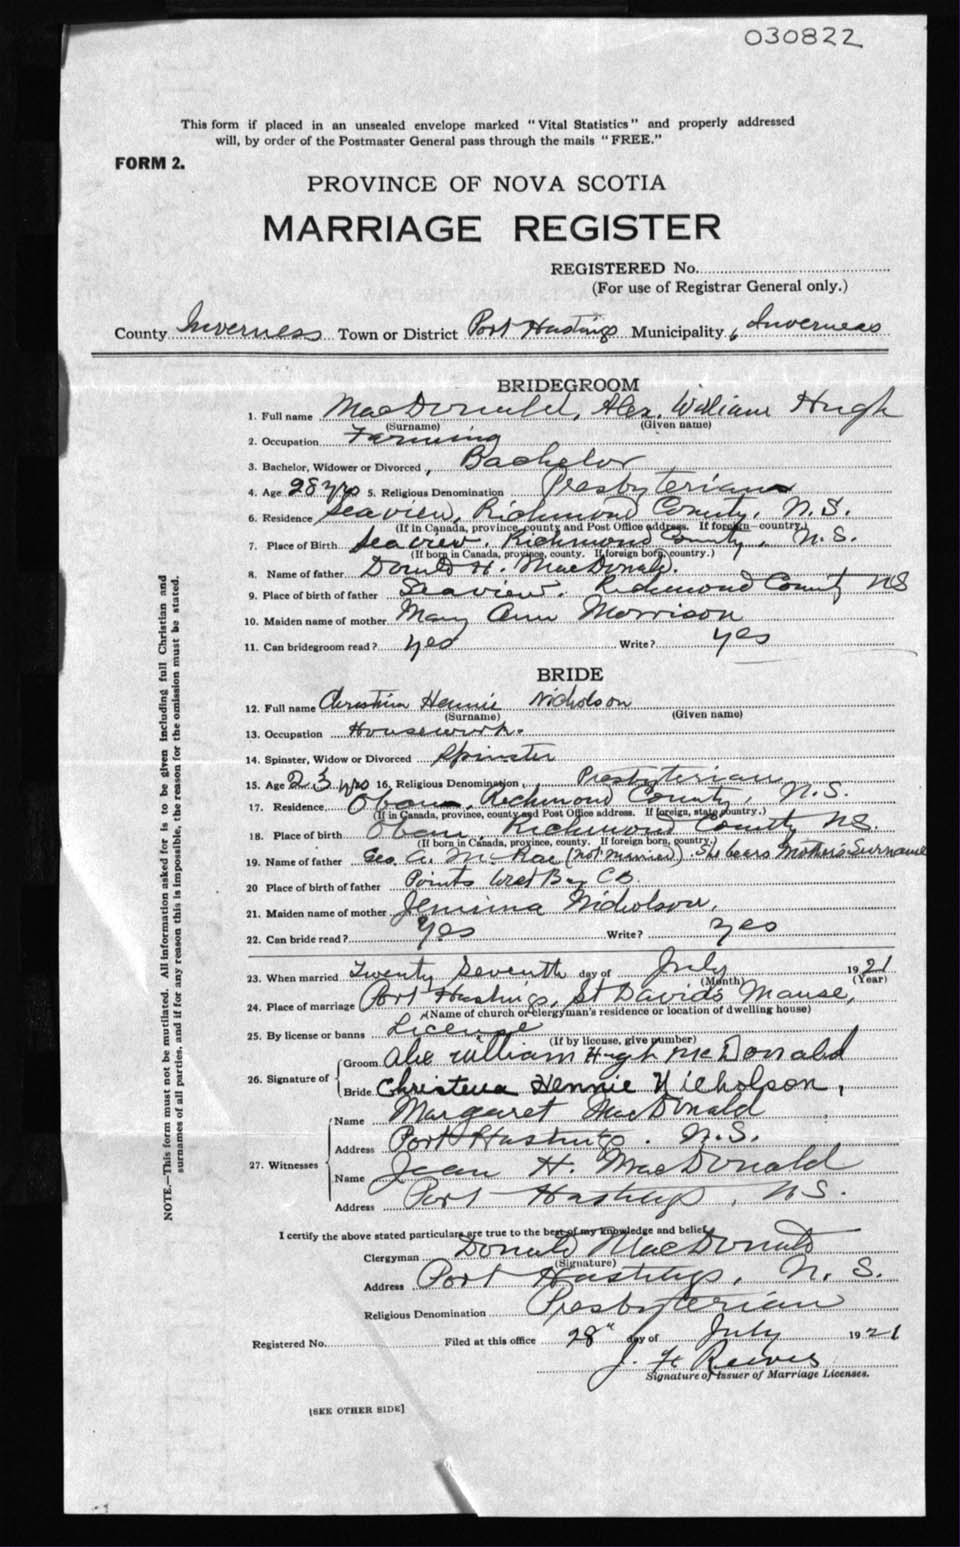 030822
This form if placed in an unsealed envelope marked "Vital Statistics" and properly addressed
will, by order of the Postmaster General pass through the mails "FREE."
FORM 2.
PROVINCE OF NOVA SCOTIA
MARRIAGE REGISTER
REGISTERED No.
(For use of Registrar General only.)
County Inverness Town or District Port Hastings Municipality Inverness
BRIDEGROOM
1. Full name MacDonald, Alex. William Hugh
(Surname) (Given name)
2. Occupation Farming
3. Bachelor, Widower or Divorced, Bachelor
4. Age 28 yrs 5. Religious Denomination Presbyterian
6. Residence Seaview, Richmond County, N.S.
(If in Canada, province, county and Post Office address. If foreign—country.)
7. Place of Birth Seaview. Richmond County, N.S.
(If born in Canada, province, county. If foreign born, country.)
8. Name of father Donald H. MacDonald.
9. Place of birth of father Seaview. Richmond County NS
10. Maiden name of mother Mary Ann Morrison
11. Can bridegroom read? yes Write? yes
BRIDE
12. Full name Christina Hennie Nicholson
(Surname) (Given name)
13. Occupation Housework.
14. Spinster, Widow or Divorced Spinster
15. Age 23 yrs 16. Religious Denomination, Presbyterian
17. Residence, Oban, Richmond County, N.S.
(If in Canada, province, county and Post Office address. If foreign, state country.)
18. Place of birth Oban, Richmond County NS
(If born in Canada, province, county. If foreign born, country.)
19. Name of father Geo. A. McRae (not married). She bears Mother's Surname
20 Place of birth of father Points West Bay C B.
21. Maiden name of mother Jemima Nicholson.
22. Can bride read? Yes Write? yes
23. When married Twenty Seventh day of July 1921
(Month) (Year)
24. Place of marriage Port Hastings, St Davids Manse,
(Name of church or clergyman's residence or location of dwelling house)
25. By license or banns License
(If by license, give number)
26. Signature of Groom Alex William Hugh McDonald
Bride Christena Hennie Nicholson,
27. Witnesses Name Margaret MacDonald
Address Port Hastings. N.S.
Name Jean H. MacDonald
Address Port Hastings, NS.
I certify the above stated particulars are true to the best of my knowledge and belief,
Clergyman Donald MacDonald
(Signature)
Address Port Hastings, N. S.
Religious Denomination Presbyterian
Registered No. Filed at this office 28" day of July 1921
J. H Reeves
Signature of Issuer of Marriage Licenses.
[SEE OTHER SIDE]
NOTE.—This form must not be mutilated. All information asked for is to be given including full Christian and
surnames of all parties, and if for any reason this is impossible, the reason for the omission must be stated.